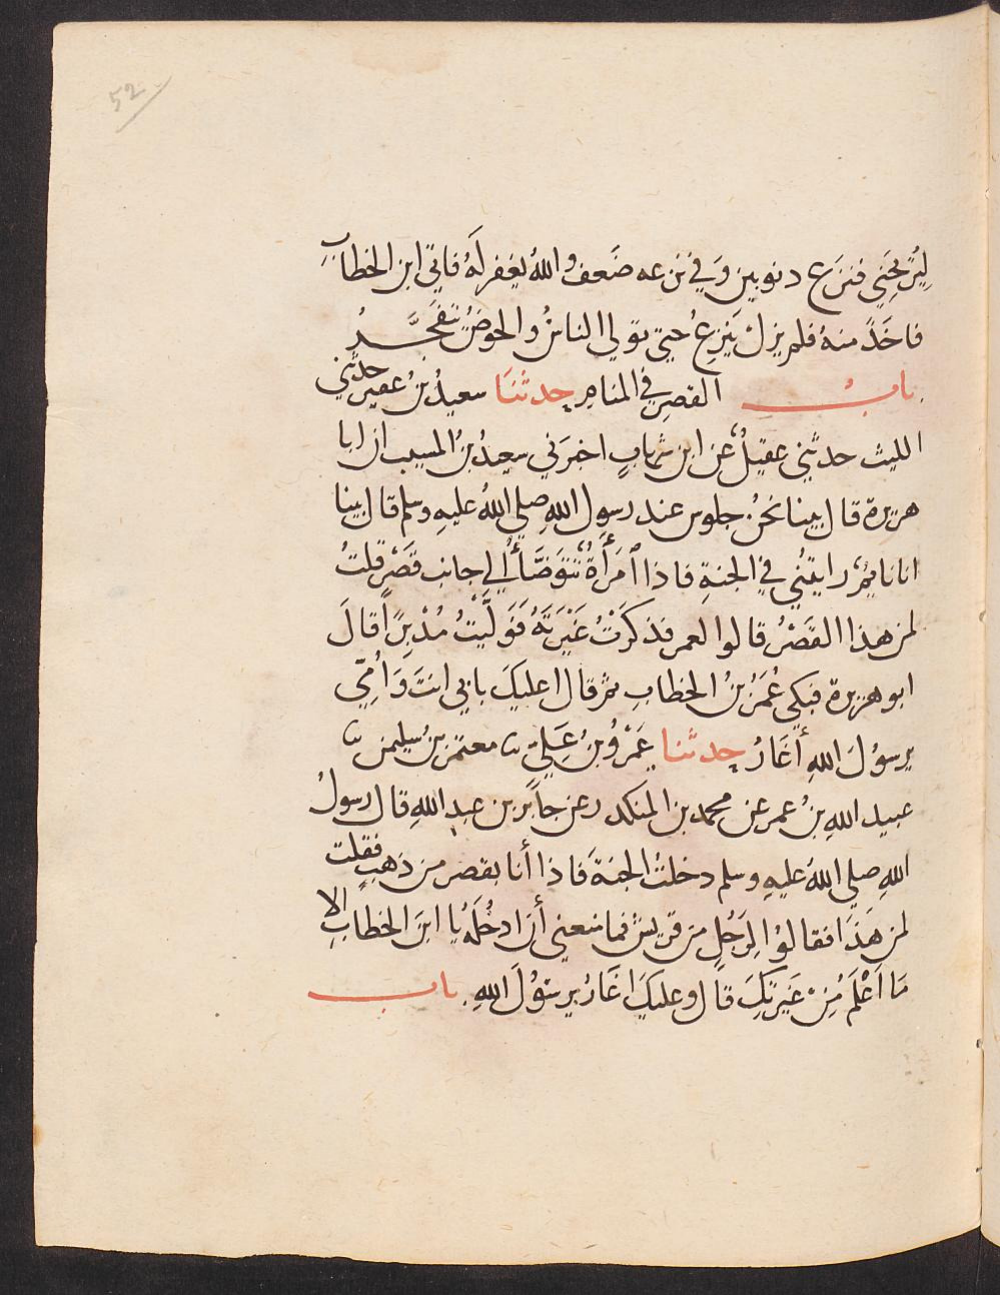 52
لِيُرِيحَنِي فنزع ذنوبين وَفي نزعه ضَعف والله يغفر لَهُ فاتى ابن الخطابِ
فاخَذ منهُ فلم يزل يَنزِعُ حتى تولى الناسُ والحوضُ يَتفَجَّرُ
باب القصرِ في المنام حدثنَا سعيدُ بنُ عفير حدثني
الليث حدثني عقيلٌ عَن ابن شهابٍ اخبرَني سعيدُ بنُ المسيب ان ابا
هريرة قال بينا نحنُ جلوس عند رسول اللهِ صلي اللهُ عليهِ وسلم قال بينا
انا نايمٌ رايتُني في الجنةِ فاذا امرَأَةٌ تَتَوَضَّأُ الي جانب قَصْرٍ قلتُ
لمن هذا القَصْرُ قالوا لعمر فذكَرْتُ غَيْرَتَهُ فَوَلَّيْتُ مُدْبِرًا قالَ
ابو هريرة فبكي عُمَرُ بنُ الخطابِ ثم قال اعليكَ بابي انتَ وَاُمّي
يرسوُلَ اللهِ أغَارُ حدثنا عَمْرُو بنُ عَلِيٍّ ثنا معتمرُ بنُ سليمن ثنا
عبيد اللهِ بنُ عمر عن محمد بن المنكدر عن جابر بن عبد اللهِ قال رسولُ
اللهِ صلي اللهُ عليهِ وسلم دخلتُ الجنةَ فاذا أنا بقصر من ذهبٍ فقلت
لمن هَذَا فقالوُا لِرَجُلٍ من قريش فما منعني أن ادخُلَهُ يا ابنَ الخطابِ الا
مَا اَعْلَمُ مِنْ غَيرتكَ قال وعليكَ اغَارُ يرسوُلَ اللهِ باب